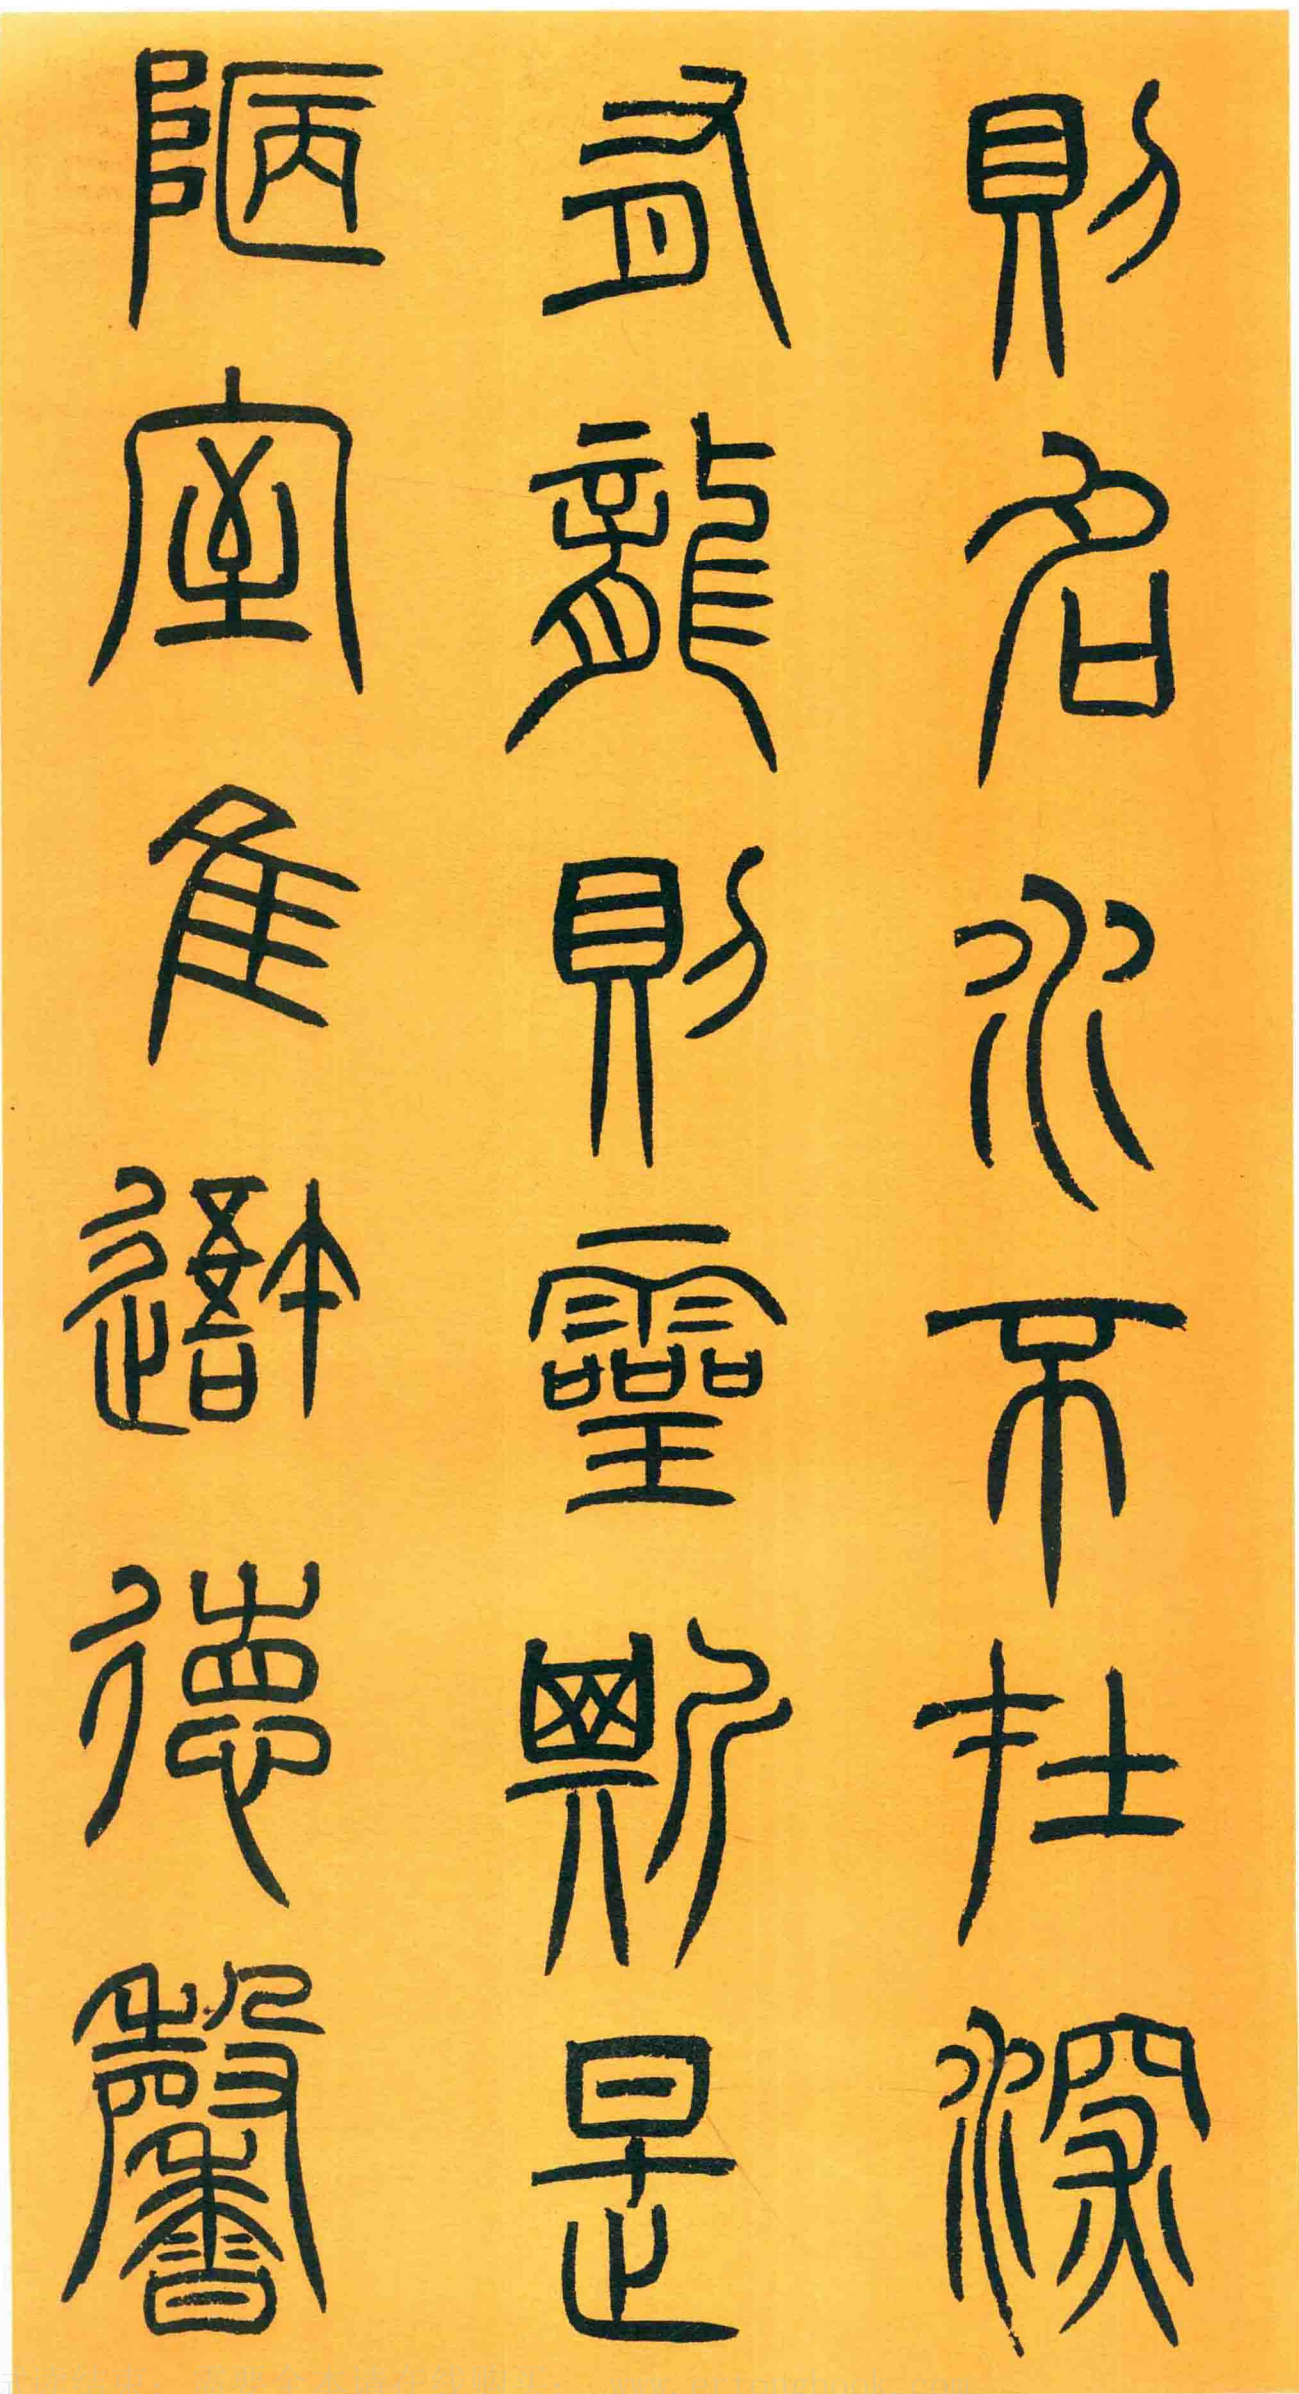 則名水不在深
有龍則靈斯是
陋室隹吾德馨